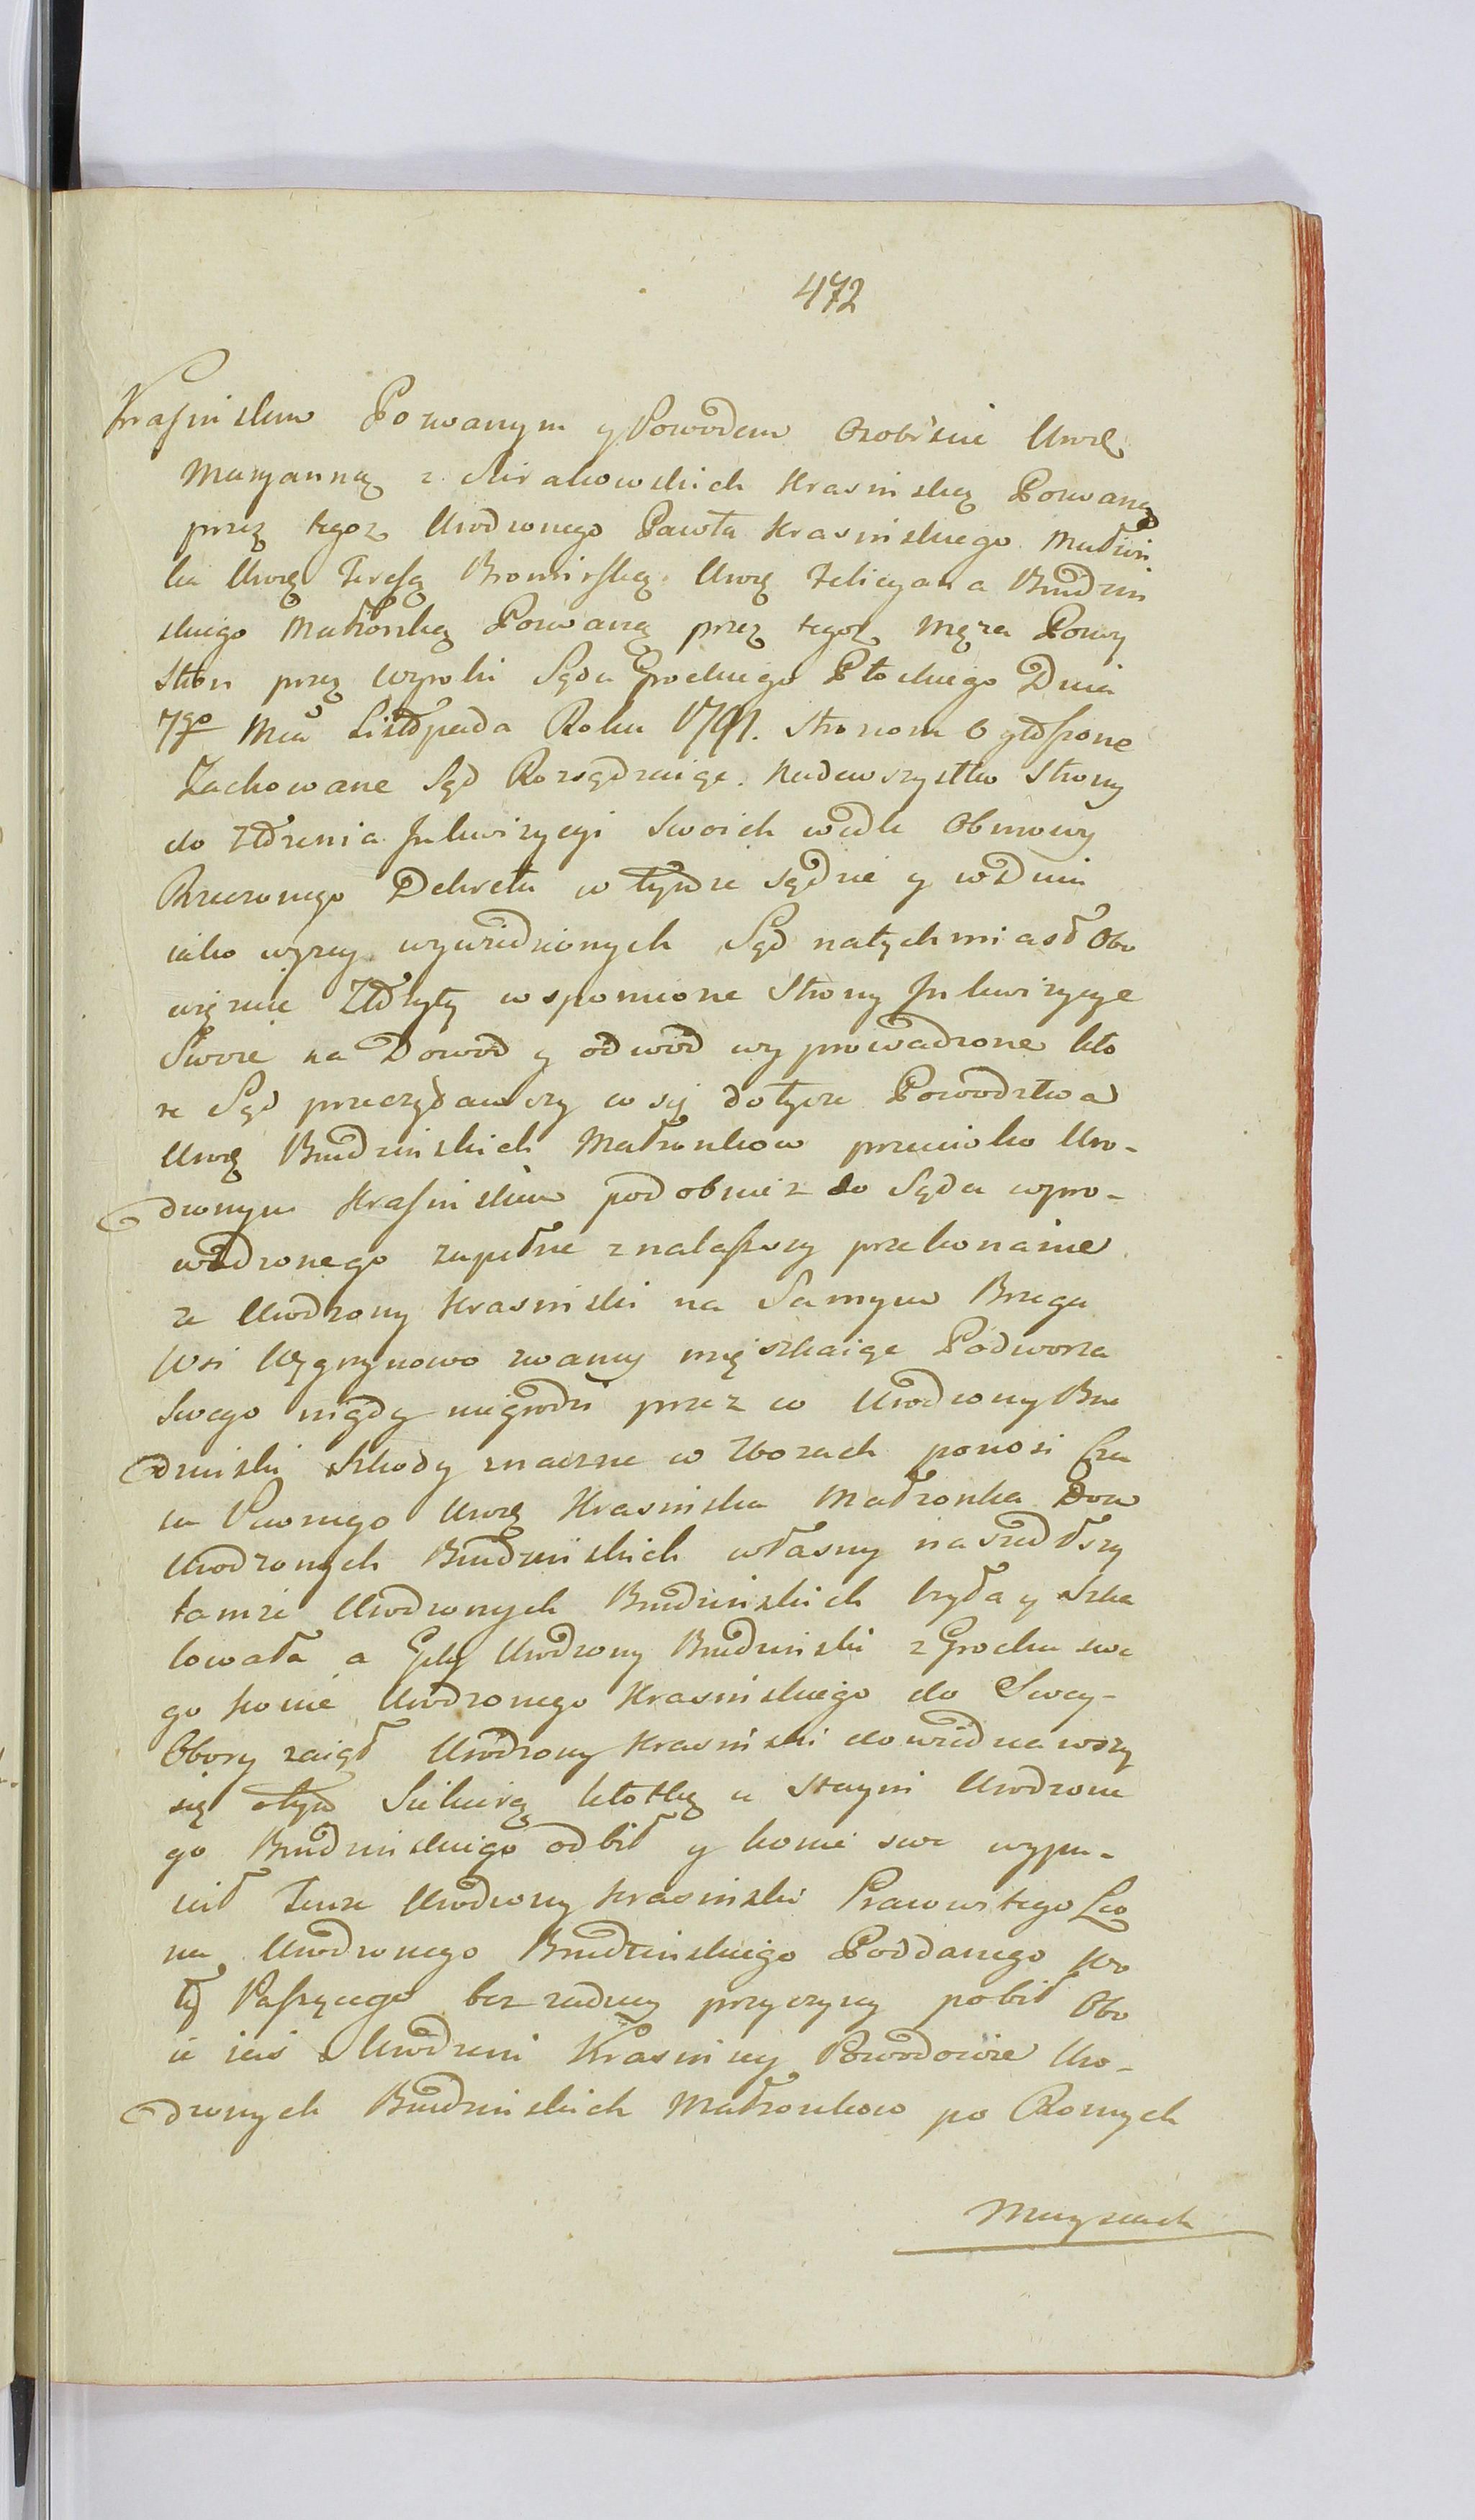 472
Krasinskim Pozwanym y Powodem Osobiscie Urod.
Maryannę z Mirakowskich Krasinską Pozwaną
przez tegoz Urodzonego Pawła Krasinskiego Małżon
ka Urod. Teresę Bromirską Urod. Felicyana Budzin
skiego Małżonkę Pozwaną przez tegoż Męża Powy
Stkon przez Wyroki Sądu Grodzkiego Płockiego Dnia
7go Mca Listopada Roku 1791. Stronom Ogłoszone
Zachowane Sąd Rozsądzaiąc. Nadewszystko Strony
do złożenia Inkwizycyi Swoich wedle Obmowy
Rzeczonego Dekretu w tymże Sądzie y w Dniu
iako wyzey wywiedzionych Sąd natychmiast Obo
wiązuie Złożyły wspomione Strony Inkwizycye
Swoie na Dowod y odwod wyprowadzone kto
re Sąd przeczytawszy co się dotycze Powodztwa
Urod. Budzinskich Małżonkow przeciwko Uro-
dzonym Krasinskim podobniez do Sądu wpro-
wadzonego zupełne znalaszszy przekonanie
ze Urodzony Krasinski na Samym Brzegu
Wsi Węgrzynowo zwaney mięszkaiąc Podworza
Swego nigdy niegrodzi przez co Urodzony Bu
dzinski Szkody znaczne w Zbozach ponosi Cza
su Pewnego Urod. Krasinska Małżonka Dom
Urodzonych Budzinskich własny naszedłszy
tamże Urodzonych Budzinskich łzyła y Szka
lowała a Gdy Urodzony Budzinski z Grochu swe
go konie Urodzonego Krasinskiego do Swey-
Obory zaiął Urodzony Krasinski dowiedziawszy
się otym Siekierą kłotkę u Stayni Urodzone
go Budzinskiego odbił y konie swe wypu-
cił Tenze Urodzony Krasinski Pracowitego
na Urodzonego Budzinskiego Poddanego
Paszącego bez zadney przyczyny pobił Obo
ie ieis Urodzeni Krasinscy Powodowie Uro-
dzonych Budzinskich Małżonkow po Roznych
Mieyscach